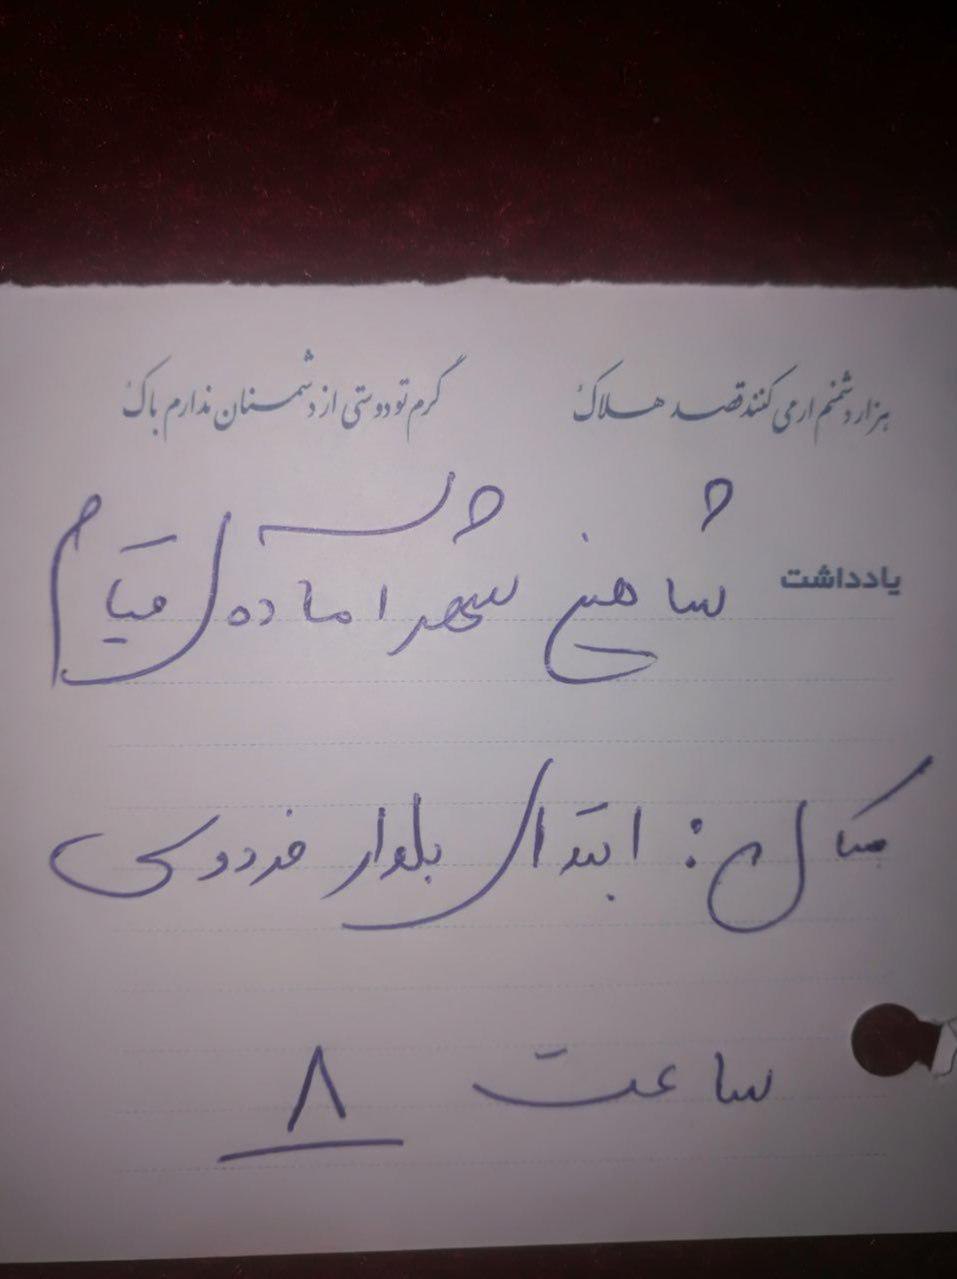 هزار دشمنم ار می کنند قصد هلاک گرم تو دوستی از دشمنان ندارم باک
یادداشت
شاهین شهر اماده ی قیام
مکان: ابتدای بلوار فردوسی
ساعت ۸